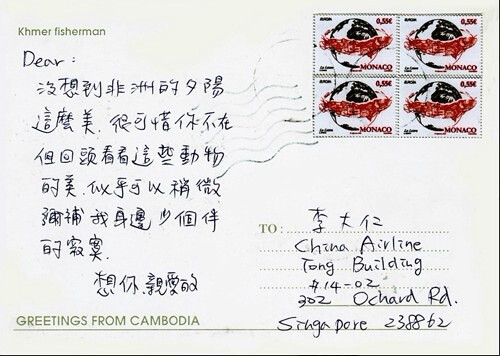 Khmer fisherman
Dear:
沒想到非洲的夕陽
這麼美.很可惜你不在
但回頭看看這些動物
的美.似乎可以稍微
彌補我身邊少個伴
的寂寞.
想你.親愛的
GREETINGS FROM CAMBODIA
EUROPA
0,55€
MONACO
EUROPA
0,55€
MONACO
EUROPA
0,55€
MONACO
EUROPA
0,55€
MONACO
TO:
李大仁
China Airline
Tong Building
#14-02
302 Ochard Rd.
Singapore 238862